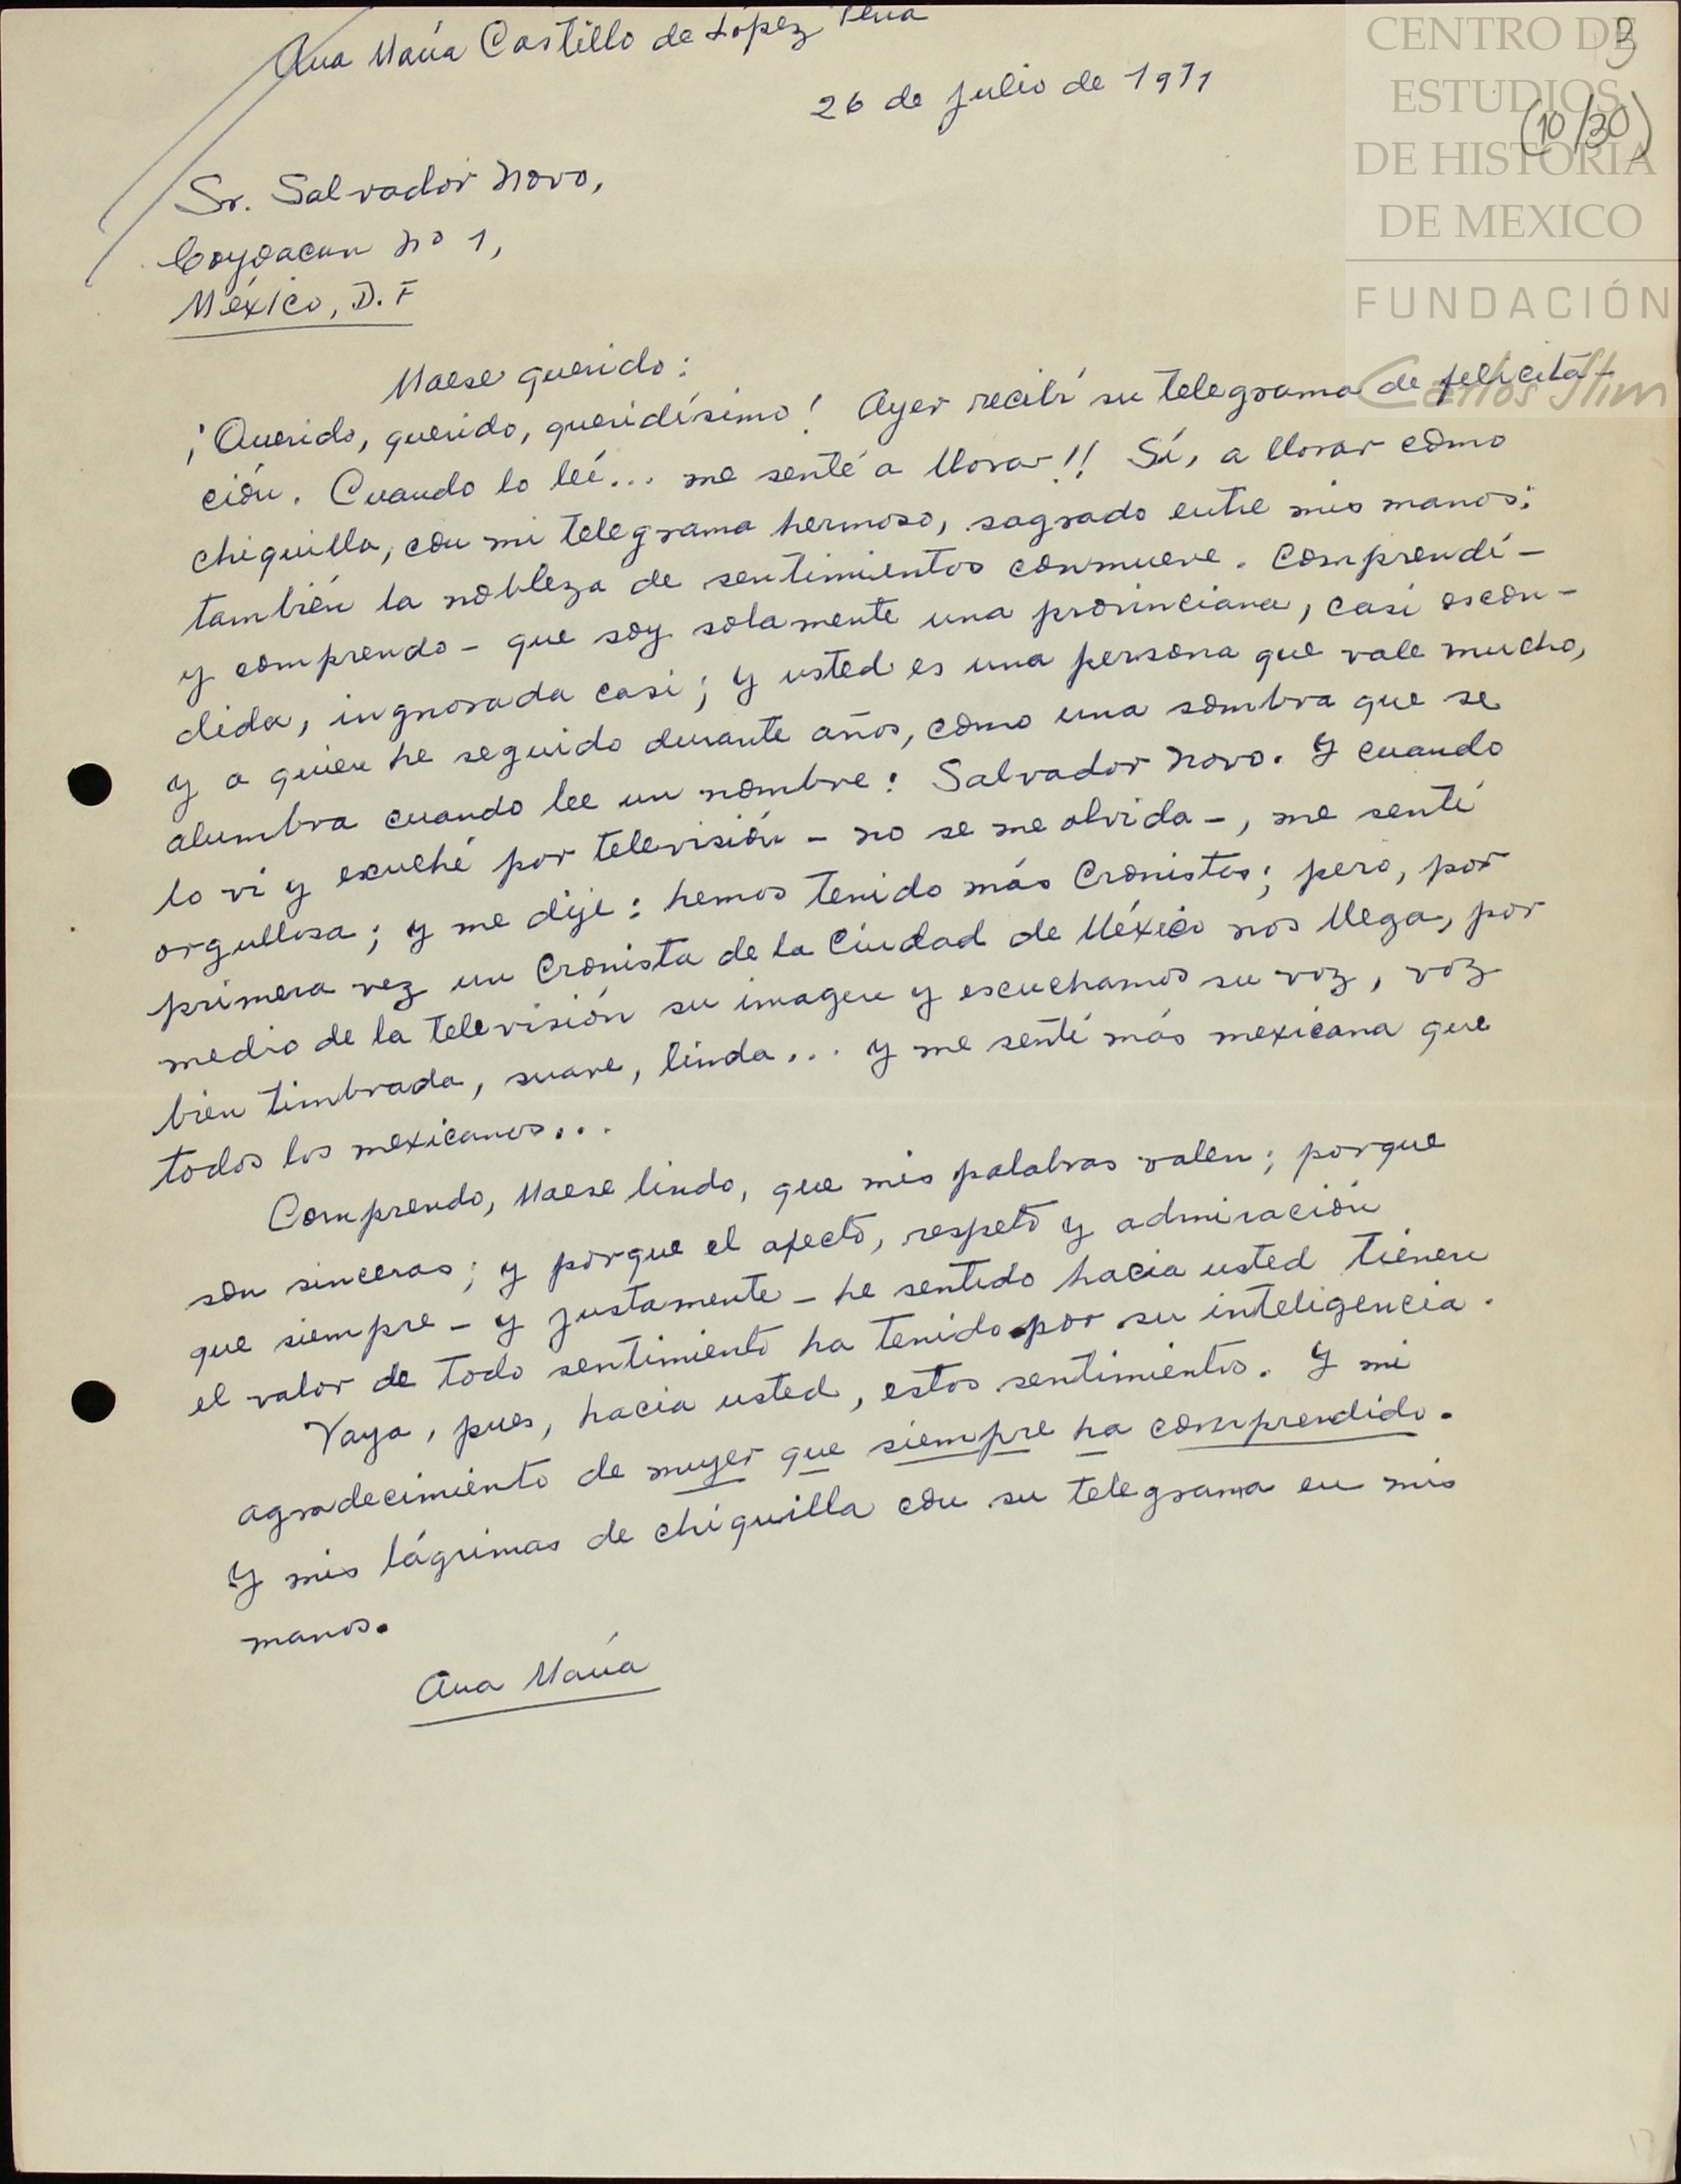 Ana María Castillo de López Pena
26 de julio de 1971
3
(10/30)
CENTRO DE
ESTUDIOS
DE HISTORIA
DE MEXICO
FUNDACIÓN
Carlos Slim
Sr. Salvador Novo,
Coyoacan No 1,
México, D. F
Maese querido:
¡Querido, querido, queridísimo! Ayer recibí su telegrama de felicita-
ción. Cuando lo leí... me senté a llorar!! Sí, a llorar como
chiquilla, con mi telegrama hermoso, sagrado entre mis manos:
también la nobleza de sentimientos conmueve. Comprendí -
y comprendo - que soy solamente una provinciana, casi escon-
dida, ingnorada casi; y usted es una persona que vale mucho,
y a quien he seguido durante años, como una sombra que se
alumbra cuando lee un nombre: Salvador Novo. Y cuando
lo vi y escuché por televisión - no se me olvida -, me sentí
orgullosa; y me dije: hemos tenido más Cronistas; pero, por
primera vez un Cronista de la Ciudad de México nos llega, por
medio de la televisión su imagen y escuchamos su voz, voz
bien timbrada, suave, linda... y me sentí más mexicana que
todos los mexicanos...
Comprendo, Maese lindo, que mis palabras valen; porque
son sinceras; y porque el afecto, respeto y admiración
que siempre - y justamente - he sentido hacia usted tienen
el valor de todo sentimiento ha tenido por su inteligencia.
Vaya, pues, hacia usted, estos sentimientos. Y mi
agradecimiento de mujer que siempre ha comprendido.
Y mis lágrimas de chiquilla con su telegrama en mis
manos.
Ana María